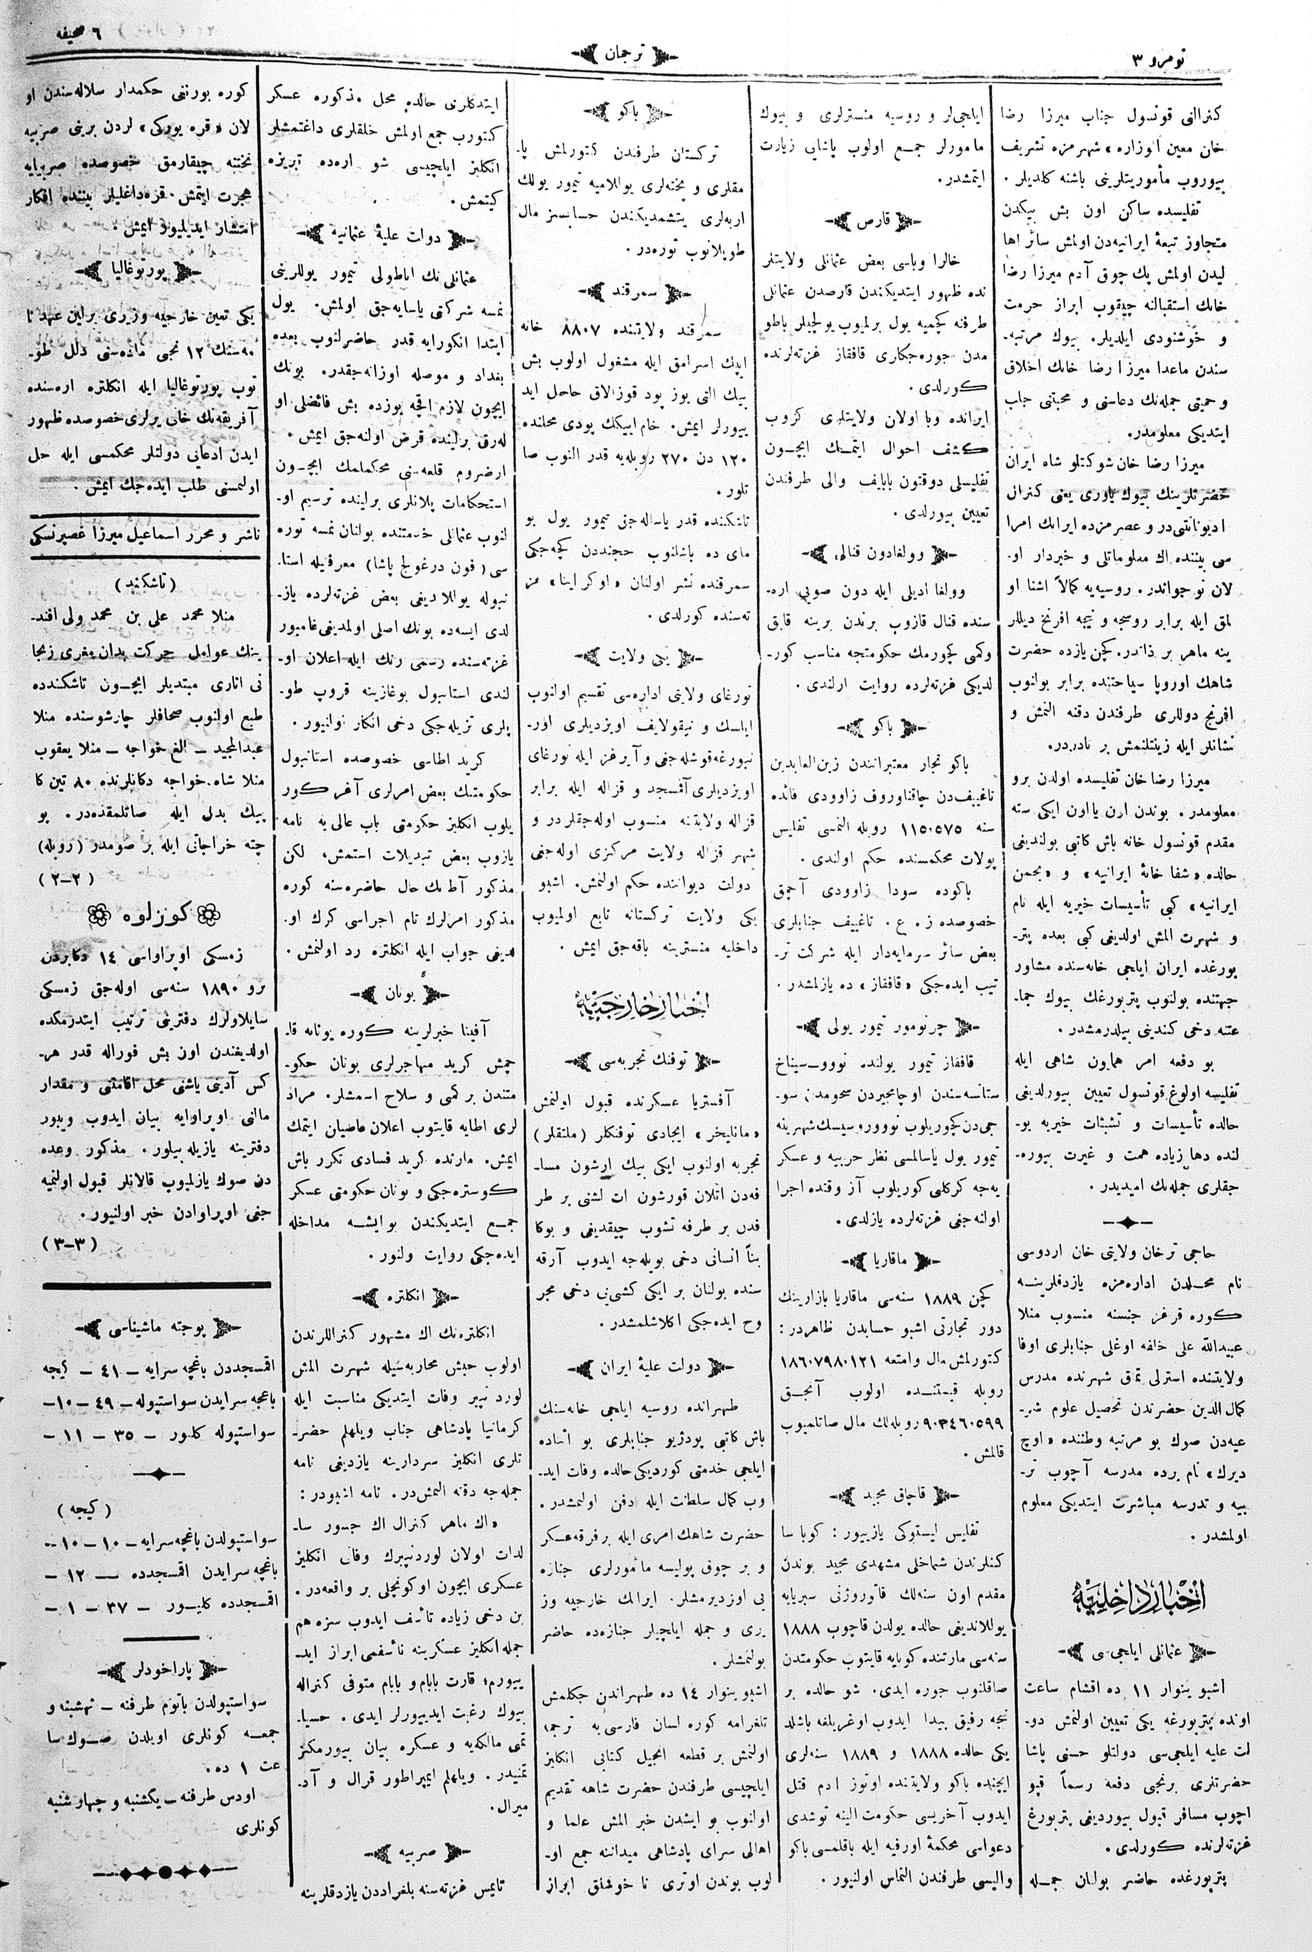 نومرو ٣
ترجمان
٦ صحیفه
کنرالنی قونسول جناب میرزا رضا
خان معین الوزاره» شهرمزه تشریف
بیوروب مأموریتلرینی باشنه کلدیلر.
تفلیسده ساکن اون بش بیکدن
متجاوز تبعهٔ ایرانیه‌دن اولمش سائر اها
لیدن اولمش پك چوق آدم میرزا رضا
خانك استقبالنه چیقوب ابراز حرمت
و خوشنودی ایلدیلر. بیوك مرتبه‌ـ
سندن ماعدا میرزا رضا خانك اخلاق
و حمیتی جمله‌نك دعاسنی و محبتنی جلب
ایتدیکی معلومدر.
میرزا رضا خان شوکتلو شاه ایران
حضرتلرینك بیوك یاوری یعنی کنرال
ادیوتانتی‌در و عصرمزده ایرانك امرا
سی بیننده اك معلوماتلی و خبردار او‌ـ
لان نوجواندر. روسیه‌یه کمالاً اشنا او
لمق ایله برابر روسجه و نیجه افرنج دیللر
ینه ماهر بر ذاتدر. کچن یازده حضرت
شاهك اوروپا سیاحتنده برابر بولنوب
افرنج دوللری طرفندن دقنه النمش و
نشانلر ایله زینتلنمش بر نادردر.
میرزا رضا خان تفلیسده اولدن برو
معلومدر. بوندن اون یا اون ایکی سنه
مقدم قونسول خانه باش کاتبی بولندیغی
حالده «شفا خانهٔ ایرانیه» و «نجمن
ایرانیه» کبی تأسیسات خیریه ایله نام
و شهرت المش اولدیغی کبی بعده پتر‌ـ
بورغده ایران ایلچی خانه‌سنده مشاور
جهتنده بولنوب پتربورغك بیوك جما‌ـ
عتنه دخی کندینی بیلدرمشدر.
بو دفعه امر همایون شاهی ایله
تفلیسه اولوغ قونسول تعیین بیورلدیغی
حالده تأسیسات و تشبثات خیریه یو‌ـ
لنده دها زیاده همت و غیرت بیوره‌ـ
جقلری جمله‌نك امیدیدر.
حاجی ترخان ولایتی خان اردوسی
نام محلدن اداره‌مزه یازدقلرینه
کوره قرغز جنسنه منسوب منلا
عبیدالله علی خلفه اوغلی جنابلری اوفا
ولایتنده استرلی تمق شهرنده مدرس
کمال الدین حضرتدن تحصیل علوم شر‌ـ
عیه‌دن صوك بو مرتبه وطننده «اوچ
دیرك» نام یرده مدرسه آچوب تر‌ـ
بیه و تدرسه مباشرت ایتدیکی معلوم
اولمشدر.
اخبار داخلیه
عثمانلی ایلچی‌سی
اشبو ینوار ١١ ده اقشام ساعت
اونده پتربورغه یکی تعیین اولنمش دو‌ـ
لت علیه ایلچی‌سی دولتلو حسنی پاشا
حضرتلری برنجی دفعه رسماً قپو
آچوب مسافر قبول بیوردیغی پتربورغ
غزته‌لرنده کورلدی.
پتربورغده حاضر بولنان جمله
ایلچی‌لر و روسیه منسترلری و بیوك
مامورلر جمع اولوب پاشایی زیارت
ایتمشدر.
قارص
خالرا وباسی بعض عثمانلی ولایتلر
نده ظهور ایتدیکندن قارصدن عثمانلی
طرفنه کچمیه یول برلمیوب یولچیلر باطو
مدن جوره‌جکاری قافقاز غزته‌لرنده
کورلدی.
ایرانده وبا اولان ولایتلری کروب
کشف احوال ایتمك ایچون
تفلیسلی دوقتون بابایف والی طرفندن
تعیین بیورلدی.
وولغادون قنالی
وولغا ادیلی ایله دون صویی اره‌ـ
سنده قنال قازوب برندن برینه قایق
وکمی کچورمك حکومتجه مناسب کور‌ـ
لدیکی غزته‌لرده روایت ارلندی.
باکو
باکو تجار معتبرانندن زین‌العابدین
تاغییف‌دن چاقناوروف زاوودی فائده
سنه ١١٥٠٥٧٥ روبله النمسی تفلیس
پولات محکمسنده حکم اولندی.
باکوده سودا زاوودی آچمق
خصوصده ز. ع. تاغییف جنابلری
بعض سائر سرمایه‌دار ایله شرکت تر‌ـ
تیب ایده‌جکی «قافقاز» ده یازلمشدر.
چرنومور تیمور یولی
قافقاز تیمور یولنده نووو‌ـسیناخ
ستانسه‌سندن اوچامچیردن سخومدن سو‌ـ
جی‌دن کچوریلوب نووورسیسك شهرینه
تیمور یول یاسالمسی نظر حربیه و عسکر
یه‌جه کرکلی کوریلوب آز وقتده اجرا
اولنه‌جغی غزته‌لرده یازلدی.
ماقاریا
کچن ١٨٨٩ سنه‌سی ماقاریا بازارینك
دور تجارتی اشبو حسابدن ظاهردر:
کتورلمش مال وامتعه ١٨٦٠٧٩٨٠١٢١
روبله قیمتنده اولوب آنجق
٩٠٣٤٦٠٥٩٩ روبله‌لك مال صاتلمیوب
قالمش.
قاچاق مجید
تفلیس لیستوکی یازییور: کوبا سا
کنلرندن شماخلی مشهدی مجید بوندن
مقدم اون سنه‌لك قاتورژنی سبریایه
یوللاندیغی حالده یولدن قاچوب ١٨٨٨
سنه‌سی مارتنده کوبایه قایتوب حکومتدن
صاقلانوب جوره ایدی. شو حالده بر
نیجه رفیق پیدا ایدوب اوغریلغه باشلد
یکی حالده ١٨٨٨ و ١٨٨٩ سنه‌لری
ایچنده باکو ولایتنده اوتوز ادم قتل
ایدوب آخریسی حکومت الینه توشدی
دعواسی محکمهٔ اورفیه ایله باقلمسی باکو
والیسی طرفندن التماس اولنیور.
باکو
ترکستان طرفندن کتورلمش پا‌ـ
مقلری و پخته‌لری یوللامیه تیمور یولك
اربه‌لری یتشمدیکندن حسابسز مال
طوپلانوب توره‌در.
سمرقند
سمرقند ولایتنده ٨٨٠٧ خانه
ایپك اسرامق ایله مشغول اولوب بش
بیك التی یوز پود قوزالاق حاصل اید
ییورلر ایمش. خام ایپیکك پودی محلنده
١٢٠ دن ٢٧٠ روبله‌یه قدر النوب صا
تلور.
تاشکنده قدر یاساله‌جق تیمور یول بو
مای ده باشلانوب حجنددن کچه‌جکی
سمرقنده نشر اولنان «اوکراینا» غز
ته‌سنده کورلدی.
یکی ولایت
تورغای ولایتی اداره‌سی تقسیم اولنوب
ایلسك و نیقولایف اویزدیلری اور‌ـ
نبورغه قوشله‌جی و آیرغز ایله تورغای
اویزدیلری آقمسجد و قزاله ایله برابر
قزاله ولایتنه منسوب اوله‌جقلردر و
شهر قزاله ولایت مرکزی اوله‌جغی
دولت دیواننده حکم اولنمش. اشبو
یکی ولایت ترکستانه تابع اولمیوب
داخلیه منسترینه باقه‌جق ایمش.
اخبار خارجیه
توفنك تجربه‌سی
آفستریا عسکرنده قبول اولنمش
«مانلیخر» ایجادی توفنکلر (ملتقلر)
تجربه اولنوب ایکی بیك ارشون مسا‌ـ
فه‌دن اتلان قورشون ات لشنی بر طر
فدن بر طرفه تشوب چیقدیغی و بوکا
بنأ انسانی دخی بویله‌جه ایدوب آرقه
سنده بولنان بر ایکی کشی‌یی دخی مجر
وح ایده‌جکی اکلاشلمشدر.
دولت علیهٔ ایران
طهرانده روسیه ایلچی خانه‌سنك
باش کاتبی پودژیو جنابلری بو اثناده
ایلچی خدمتی کوردیکی حالده وفات اید‌ـ
وب کمال سلطنت ایله ادفن اولنمشدر.
حضرت شاهك امری ایله برفرقه‌عسکر
و بر چوق پولیسه مامورلری جنازه
یی اوزدیرمشلر. ایرانك خارجیه وز
یری و جمله ایلچیلر جنازه‌ده حاضر
بولنمشلر.
اشبو ینوار ١٤ ده طهراندن چکلمش
تلغرامه کوره لسان فارسی‌یه ترجمه
اولنمش بر قطعه انجیل کتابی انکلیز
ایلچیسی طرفندن حضرت شاهه تقدیم
اولنوب و ایشدن خبر المش علما و
اهالی سرای پادشاهی میداننه جمع او‌ـ
لوب بوندن اوتری نا خوشلق ابراز
ایتدکلری حالده محل مذکوره عسکر
کتورب جمع اولمش خلقلری داغتمشلر
انکلیز ایلچیسی شو اره‌ده تبریزه
کیتمش.
دولت علیهٔ عثمانیه
عثمانلی‌نك اناطولی تیمور یوللرینی
نمسه شرکتی یاسایه‌جق اولمش. یول
ابتدا انکورایه قدر حاضرلنوب بعده
بغداد و موصله اوزانه‌جقدر. بونك
ایچون لازم اقچه یوزده بش فائضلی او
له‌رق برلینده قرض اولنه‌جق ایمش.
ارضروم قلعه‌سنی محکملمك ایچون
استحکامات پلانلری برلینده ترسیم او‌ـ
لنوب عثمانلی خدمتنده بولنان نمسه توره
سی (فون درغولچ پاشا) معرفتیله استا‌ـ
نبوله یوللادیغی بعض غزته‌لرده یاز‌ـ
لدی ایسه‌ده بونك اصلی اولمدیغی غامبور
غزته‌سنده رسمی رنك ایله اعلان او‌ـ
لندی استانبول بوغازینه قروپ طو‌ـ
پلری تزیله‌جکی دخی انکار نولنیور.
کرید اطاسی خصوصده استانبول
حکومتنك بعض امرلری آغر کور
یلوب انکلیز حکومتی باب عالی‌یه نامه
یازوب بعض تبدیلات استمش، لکن
مذکور آطه‌نك حال حاضره‌سنه کوره
مذکور امرلرك تام اجراسی کرك او‌ـ
لدیغی جواب ایله انکلتره رد اولنمش.
یونان
آفینا خبرلرینه کوره یونانه قا‌ـ
چمش کرید مهاجرلری یونان حکو‌ـ
متندن بر کمی و سلاح اسمشلر. مراد
لری اطایه قایتوب اعلان عاصیان ایتمك
ایمش. مارتده کرید فسادی تکرر باش
کوستره‌جکی و یونان حکومتی عسکر
جمع ایتدیکندن بو ایشه مداخله
ایده‌جکی روایت ولنور.
انکلتره
انکلتره‌نك اك مشهور کنراللرندن
اولوب حبش محاربه‌سیله شهرت المش
لورد نپیر وفات ایتدیکی مناسبت ایله
کرمانیا پادشاهی جناب ویلهلم حضر‌ـ
تلری انکلیز سردارینه یازدیغی نامه
جمله‌جه دقنه النمش‌در. نامه اشبودر:
«اك ماهر کنرال اك جسور سا‌ـ
لدات اولان لوردنپیرك وفاتی انکلیز
عسکری ایچون اوکونچلی بر واقعه‌در.
بن دخی زیاده تأسف ایدوب سزه هم
جمله انکلیز عسکرینه تاسفمی ابراز اید‌ـ
ییورم؛ قارت بابام و بابام متوفی کنراله
بیوك رغبت ایدییورلر ایدی. حسیا‌ـ
تمی مالکه‌یه و عسکره بیان بیورمکز
تمنیدر. ویلهلم ایمپراطور قرال و آد‌ـ
میرال.
صربیه
تایمس غزته‌سنه بلغراددن یازدقلرینه
کوره بورننی حکمدار سلاله‌سندن او
لان «قره یورکی» لردن برینی صربیه
تختنه چیقارمق خصوصده صربیایه
هجرت ایتمش قره‌داغلیلر بیننده افکار
انتشار ایدیلیور ایمش.
پورتوغالیا
یکی تعین خارجیه وزیری براین عهد نا
مه‌سنك ١٢ نجی ماده‌سنی دلل طو‌ـ
توب پورتوغالیا ایله انکلتره اره‌سنده
آفریقه‌نك خالی یرلری خصوصده ظهور
ایدن ادعایی دولتلر محکمسی ایله حل
اولنمسنی طلب ایده‌جك ایمش.
ناشر و محرر اسماعیل میرزا غصپرنسکی
(تاشکند)
منلا محمد علی بن محمد ولی افند‌ـ
ینك عوامل حرکت بدان مغری زنجا
نی اثاری مبتدیلر ایچون تاشکندده
طبع اولنوب صحافلر چارشوسنده منلا
عبدالمجید ـ الغ خواجه ـ منلا یعقوب
منلا شاه‌ـخواجه دکانلرنده ٨٠ تین کا
پیك بدل ایله صاتلمقده‌در. بو
چته خراجاتی ایله بر صومدر (روبله)
(٢–٢)
کوزلوه
زمسکی اوپراواسی ١٤ دکابردن
برو ١٨٩٠ سنه‌سی اوله‌جق زمسکی
سایلاولرك دفترینی ترتیب ایتدرمکده
اولدیغندن اون بش فوراله قدر هر‌ـ
کس آدینی یاشنی محل اقامتنی و مقدار
مالنی اوپراوایه بیان ایدوب ویبور
دفترینه یازیله بیلور. مذکور وعده
دن صوك یازلمیوب قالانلر قبول اولنمیه
جغی اوپراوادن خبر اولنیور.
(٣–٣)
پوچته ماشیناسی
اقمسجددن باغچه سرایه – ٤١ – کیجه
باغچه سرایدن سواستپوله – ٤٩ – ١٠–
سواستپوله کلور – ٣٥ – ١١ –
(کیجه)
سواستپولدن باغچه سرایه – ١٠ – ١٠ –
باغچه سرایدن اقمسجدده — ١٢ –
اقمسجدده کلیور – ٣٧ – ١ –
پاراخودلر
سواستپولدن باتوم طرفنه – نهشنبه و
جمعه کونلری اویلدن صوك سا
عت ١ ده.
اودس طرفنه – یکشنبه و چهارشنبه
کونلری